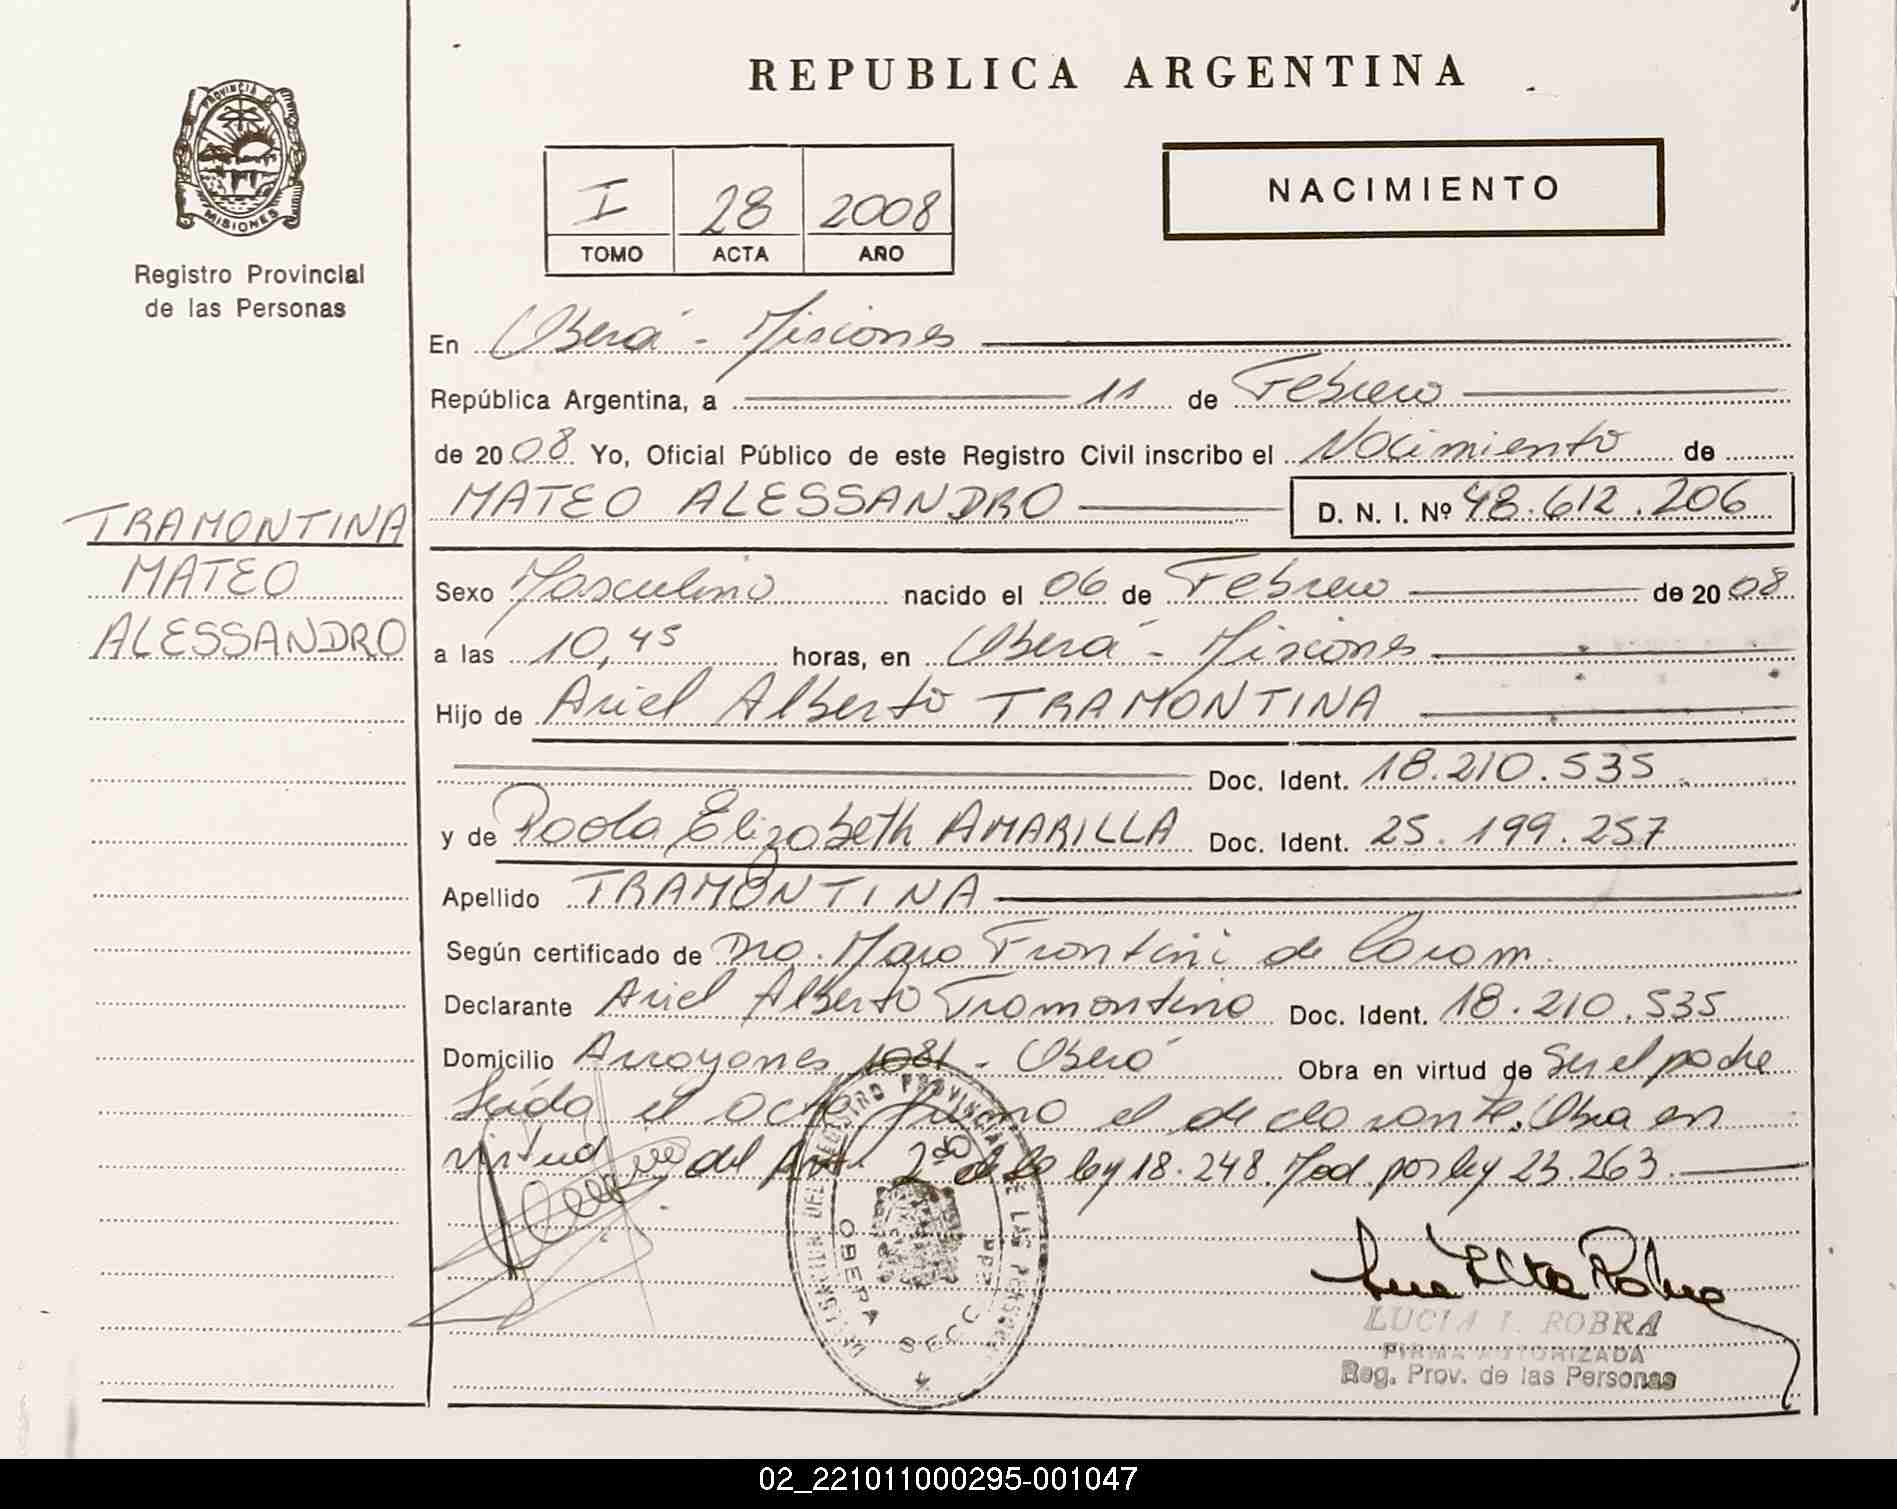 REPUBLICA ARGENTINA
PROVINCIA DE
MISIONES
Registro Provincial
de las Personas
I 28 2008
TOMO ACTA AÑO
NACIMIENTO
En Oberá - Misiones
República Argentina, a 11 de Febrero
de 2008 Yo, Oficial Público de este Registro Civil inscribo el Nacimiento de
MATEO ALESSANDRO D. N. I. Nº 48.612.206
TRAMONTINA
MATEO
ALESSANDRO
Sexo Masculino nacido el 06 de Febrero de 2008
a las 10,45 horas, en Oberá - Misiones
Hijo de Ariel Alberto TRAMONTINA
Doc. Ident. 18.210.535
y de Paola Elizabeth AMARILLA Doc. Ident. 25.199.257
Apellido TRAMONTINA
Según certificado de Dra. Mara Frontini de
Declarante Ariel Alberto Tramontina Doc. Ident. 18.210.535
Domicilio Arroyones 1081 - Oberá Obra en virtud de Ser el padre
Leída el acta firma el declarante. Obra en
virtud del Art. 2do de la ley 18.248 Mod. por ley 23.263.
REGISTRO PROVINCIAL DE LAS PERSONAS
OBERA SECC
LUCIA I. ROBRA
FIRMA AUTORIZADA
Reg. Prov. de las Personas
02_221011000295-001047